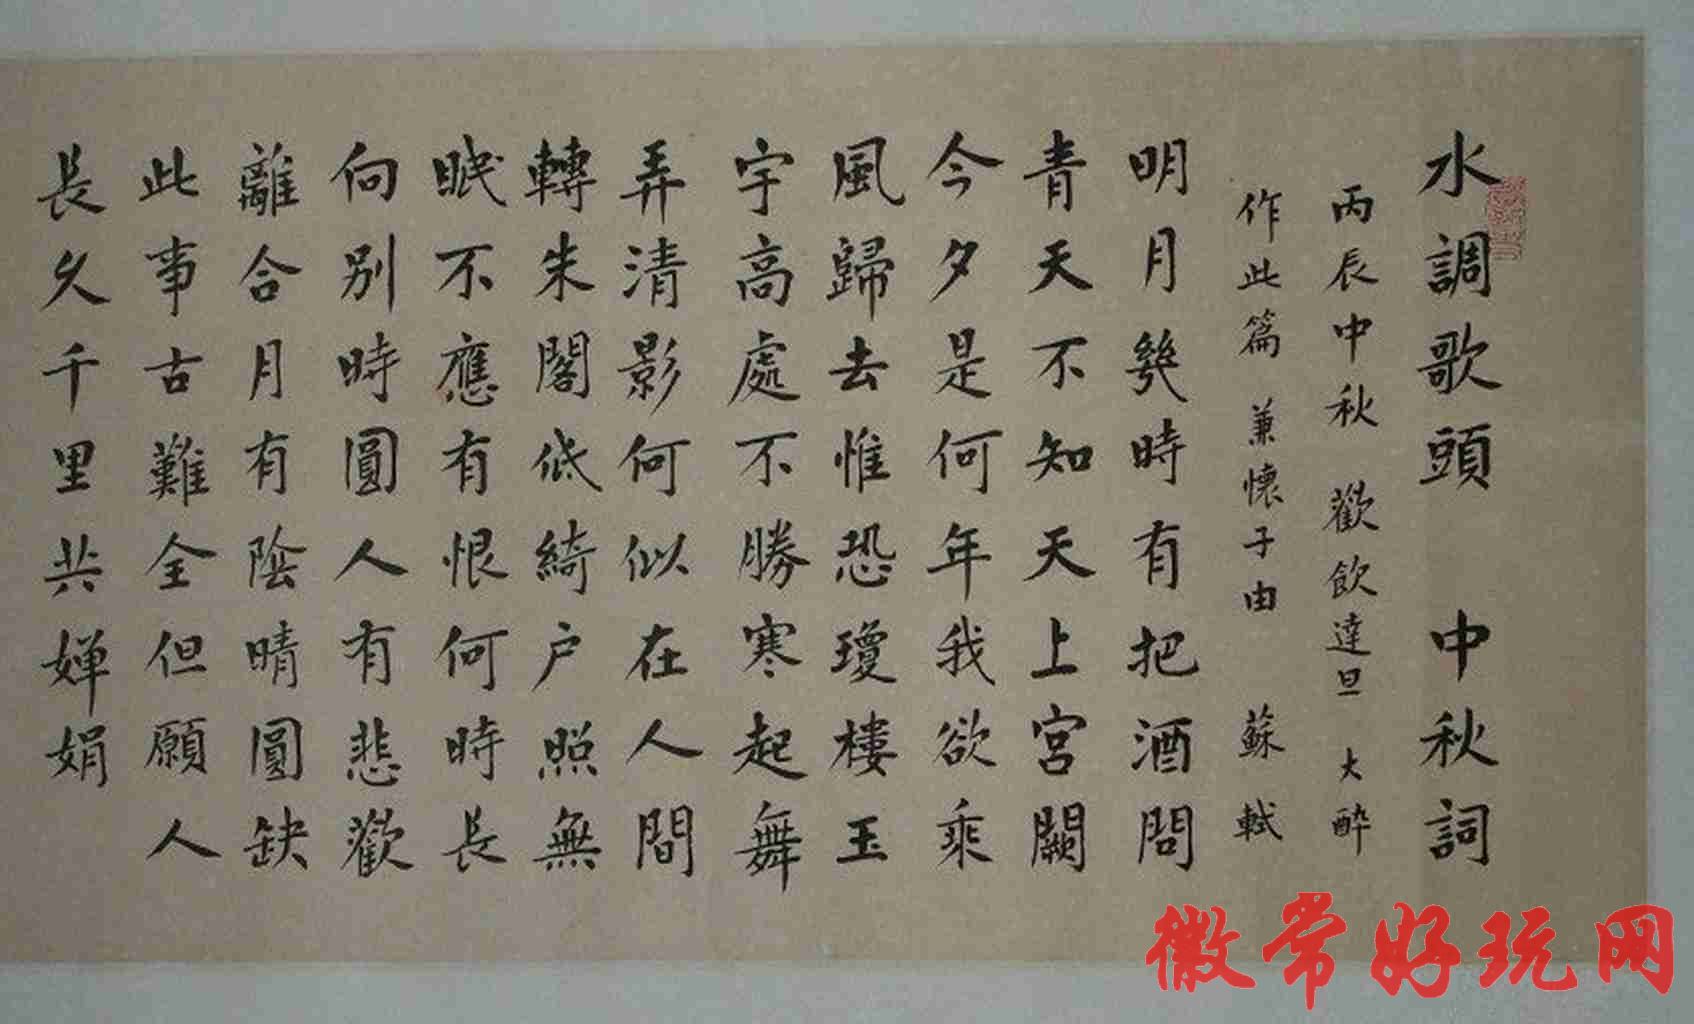 水調歌頭 中秋詞
丙辰中秋 歡飲達旦 大醉
作此篇 兼懷子由 蘇軾
明月幾時有把酒問
青天不知天上宮闕
今夕是何年我欲乘
風歸去惟恐瓊樓玉
宇高處不勝寒起舞
弄清影何似在人間
轉朱閣低綺户照無
眠不應有恨何時長
向别時圓人有悲歡
離合月有陰晴圓缺
此事古難全但願人
長久千里共嬋娟
徽常好玩网